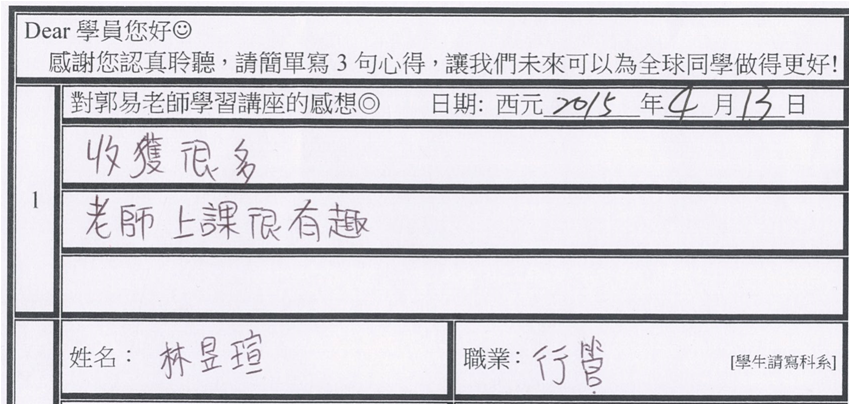 Dear 學員您好☺
感謝您認真聆聽，請簡單寫 3 句心得，讓我們未來可以為全球同學做得更好!
對郭易老師學習講座的感想◎ 日期: 西元 2015 年 4 月 13 日
1
收獲很多
老師上課很有趣
姓名： 林昱瑄 職業： 行管 [學生請寫科系]